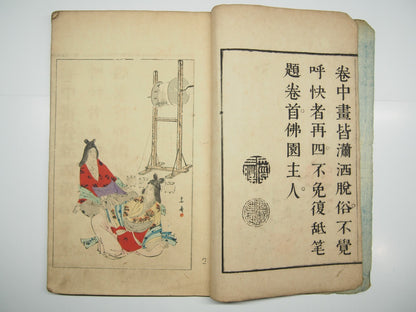 卷中畫皆瀟洒脫俗不覺
呼快者再四不免復舐笔
題卷首佛園主人